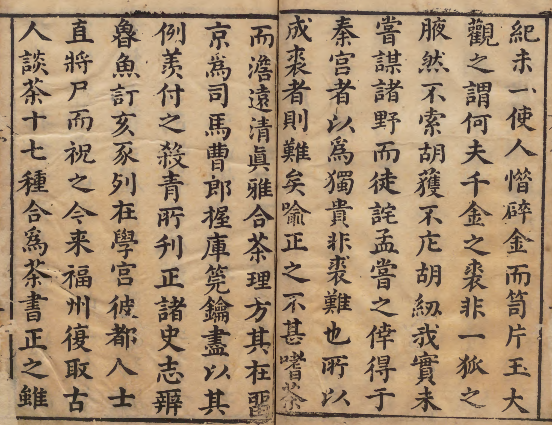 紀未一使人憯碎金而笥片玉大
觀之謂何夫千金之裘非一狐之
腋然不索胡獲不庀胡紉我實未
嘗謀諸野而徒詫孟嘗之倖得于
秦宫者以爲獨貴非裘難也所以
成裘者則難矣喻正之不甚嗜茶
而澹遠清眞雅合茶理方其在留
京爲司馬曹郎握庫筦鑰盡以其
例羨付之殺青所刊正諸史志辯
魯魚訂亥豕列在學宫彼都人士
直將尸而祝之今来福州復取古
人談茶十七種合爲茶書正之雖